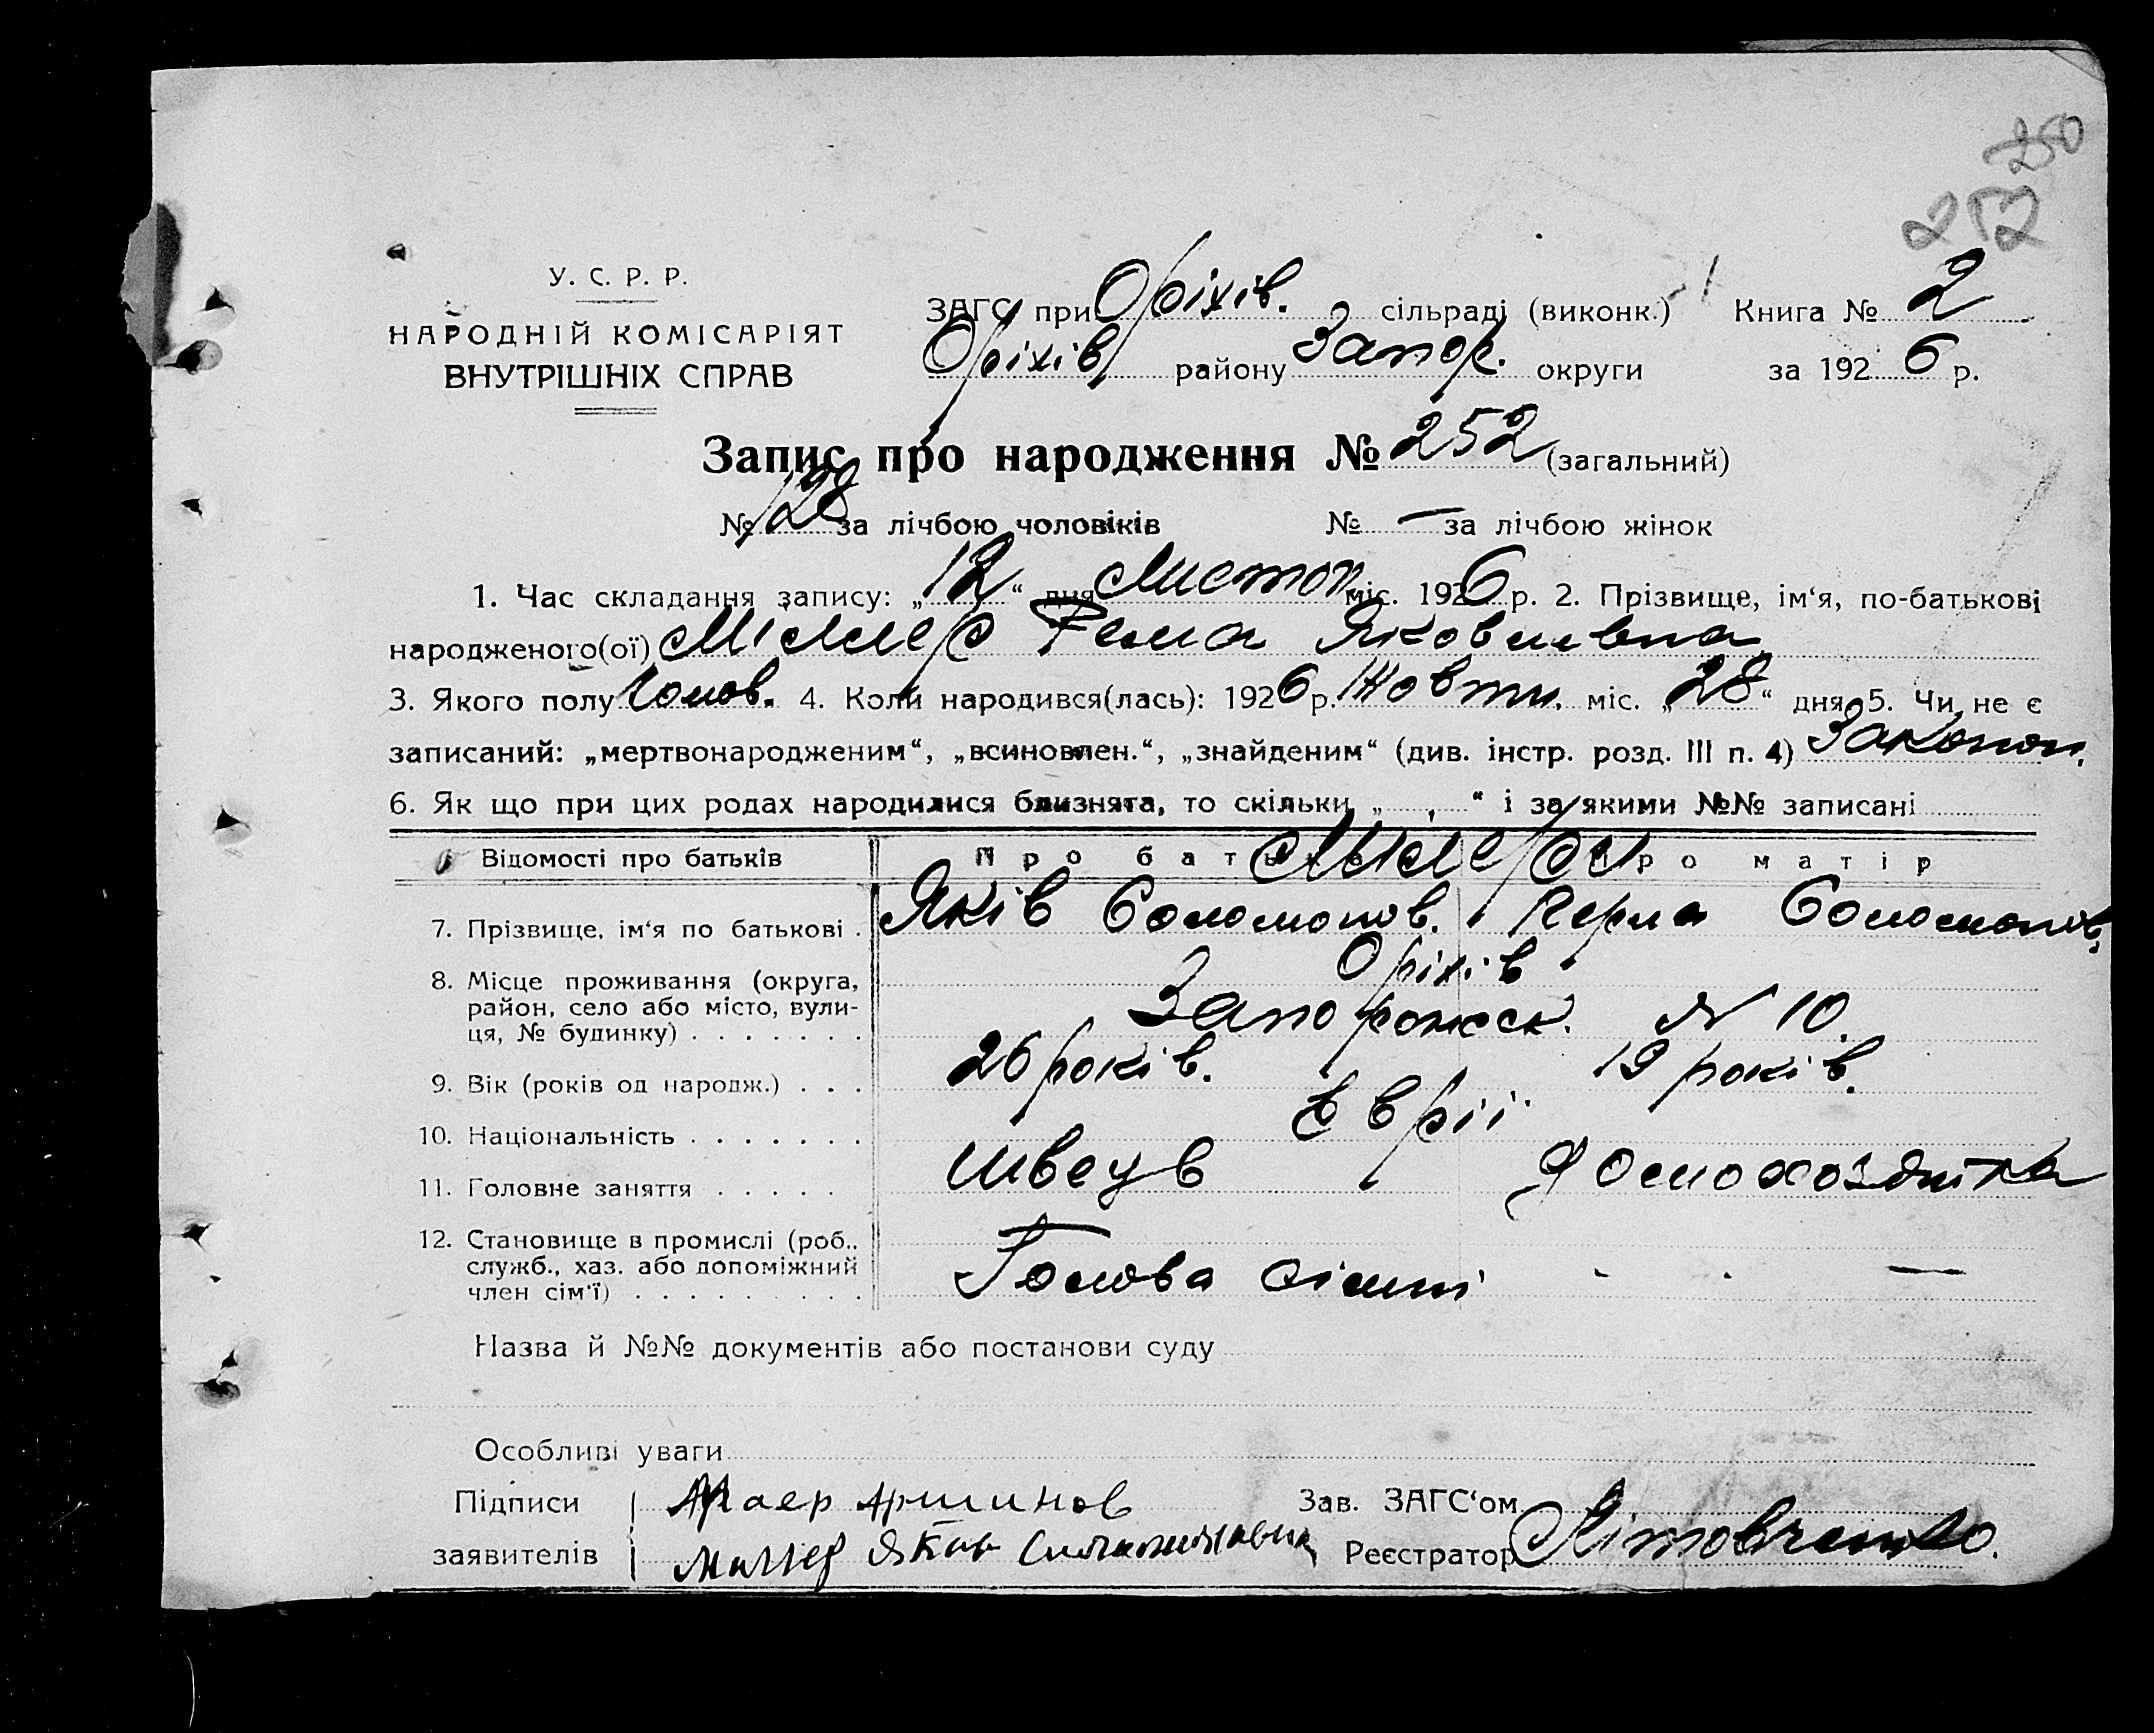 250
252
У. С. Р. Р.
НАРОДНІЙ КОМІСАРІЯТ
ВНУТРІШНІХ СПРАВ
ЗАГС при Оріхів. сільраді (виконк.) Книга № 2
Оріхів району Запор. округи за 1926 р.
Запис про народження № 252 (загальний)
№ 128 за лічбою чоловіків № — за лічбою жінок
1. Час складання запису: „12“ дня Листоп міс. 1926 р. 2. Прізвище, ім‘я, по-батькові
народженого(ої) Міллер Рема Яковлевна
3. Якого полу Чолов. 4. Коли народився(лась): 1926 р. Жовтн. міс. „28“ дня 5. Чи не є
записаний: „мертвонародженим“, „всиновлен.“, „знайденим“ (див. інстр. розд. III п. 4) Законон.
6. Як що при цих родах народилися близнята, то скільки „ “ і за якими №№ записані
Відомості про батьків Про батька Міллери Про матір
7. Прізвище, ім‘я по батькові . Яків Соломонов. Перла Соломонов.
8. Місце проживання (округа, Оріхів
район, село або місто, вули-
ця, № будинку) . . . . . . . Запорожск. № 10.
9. Вік (років од народж.) . . . 26 років. 19 років.
10. Національність . . . . . . . Евріі
11. Головне заняття . . . . . Швець Домохозяйка
12. Становище в промислі (роб.,
служб., хаз. або допоміжний
член сім‘ї) . . . . . . . . . Голова сімні —
Назва й №№ документів або постанови суду
Особливі уваги
Підписи Маер Аршинов Зав. ЗАГС‘ом
заявителів Миллер Яков Реєстратор Літовченко.